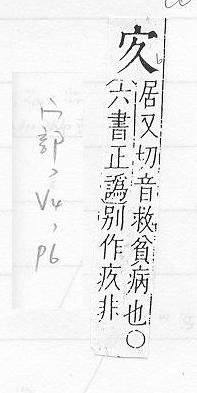 宊
居又切音救貧病也〇
六書正譌别作㡱非
宀部、V4、P6